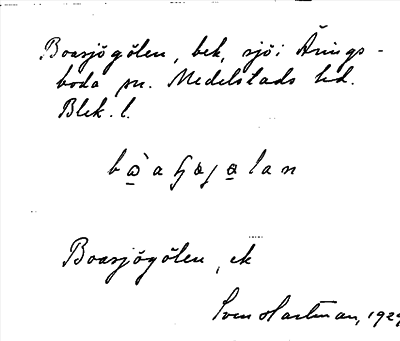 Boasjögölen, bek, sjö i Årings-
boda sn. Medelstads hd.
Blek. l.
Boasjögölen, ek
Sven Hartman, 1929